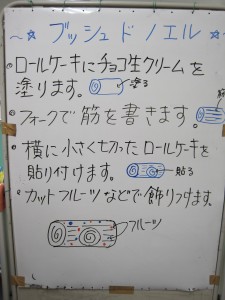 ～☆ ブッシュドノエル ☆～
ロールケーキにチョコ生クリームを
塗ります。 塗る
フォークで筋を書きます。
横に小さく切ったロールケーキを
貼り付けます。 貼る
カットフルーツなどで飾りつけます。
フルーツ